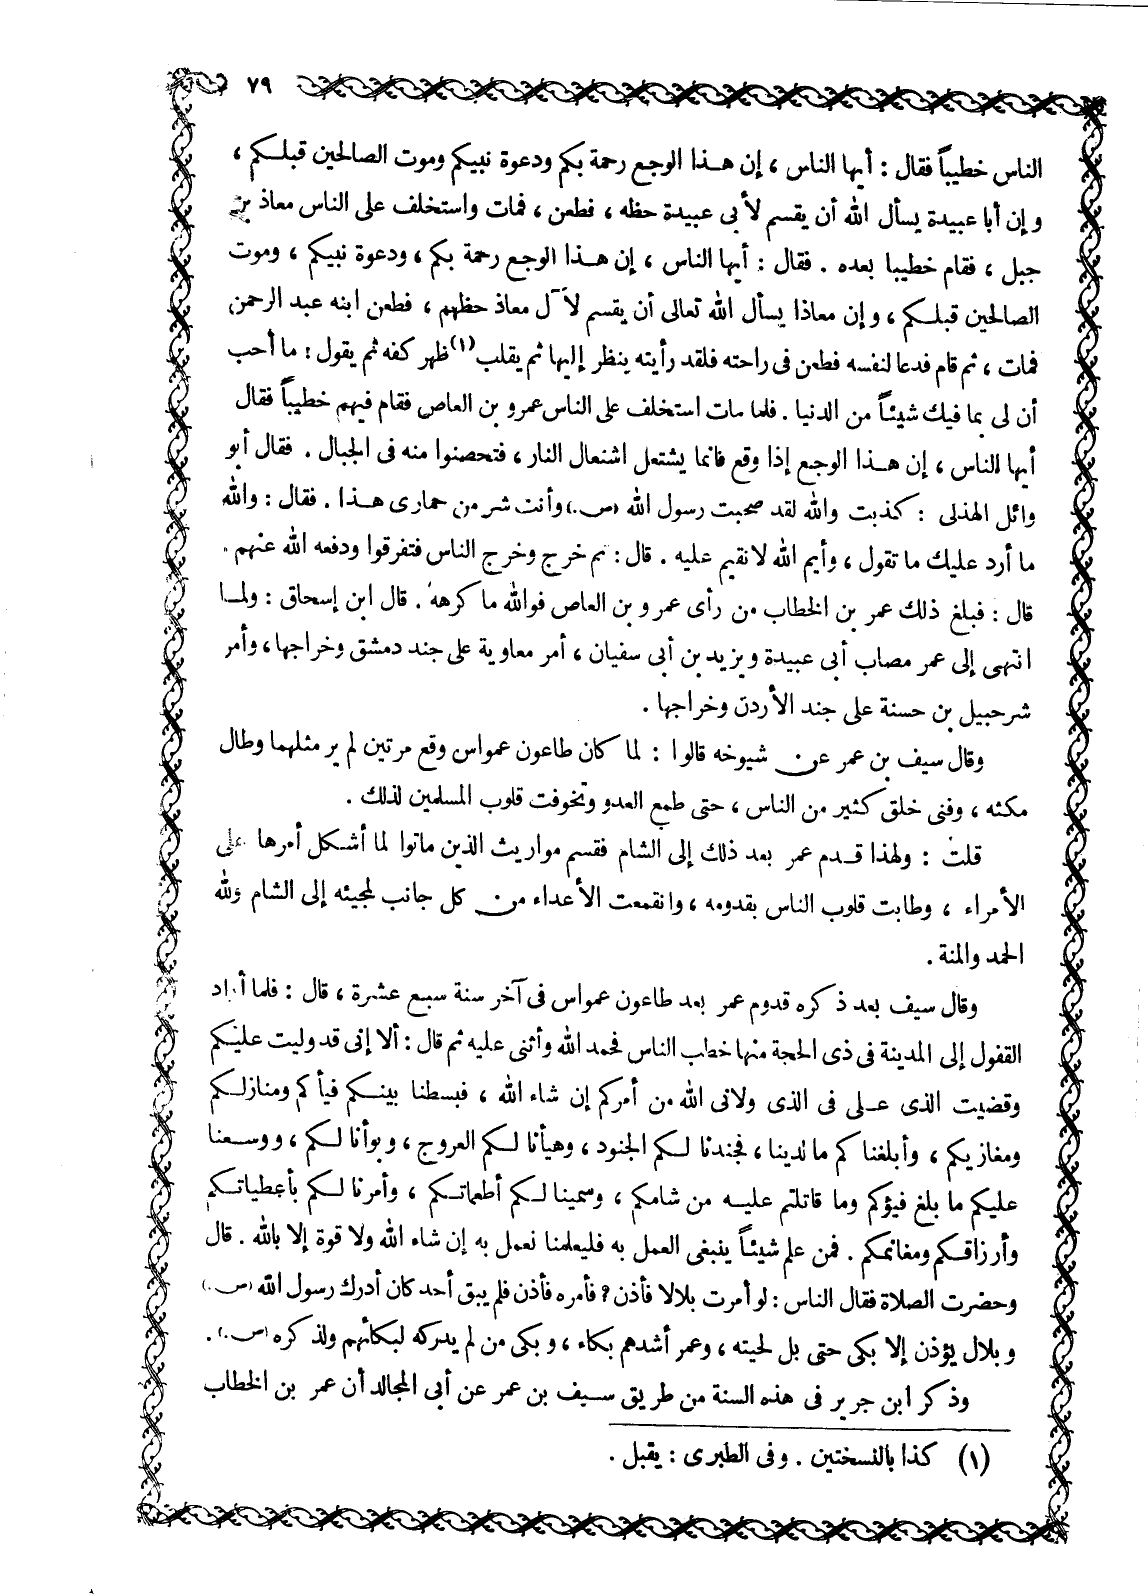 ٧٩
الناس خطيباً فقال : أيها الناس ، إن هـذا الوجع رحمة بكم ودعوة نبيكم وموت الصالحين قبلـكم ،
وإن أبا عبيدة يسأل الله أن يقسم لأبى عبيدة حظه ، فطعن ، فمات واستخلف على الناس معاذ بن
جبل ، فقام خطيبا بعده . فقال : أيها الناس ، إن هـذا الوجع رحمة بكم ، ودعوة نبيكم ، وموت
الصالحين قبلـكم ، وإن معاذا يسأل الله تعالى أن يقسم لآل معاذ حظهم ، فطعن ابنه عبد الرحمن
فمات ، ثم قام فدعا لنفسه فطعن فى راحته فلقد رأيته ينظر إليها ثم يقلب (١) ظهر كفه ثم يقول : ما أحب
أن لى بما فيك شيئاً من الدنيا . فلما مات استخلف على الناس عمرو بن العاص فقام فيهم خطيباً فقال
أيها الناس ، إن هـذا الوجع إذا وقع فانما يشتعل اشتعال النار ، فتحصنوا منه فى الجبال . فقال أبو
وائل الهذلى : كذبت والله لقد صحبت رسول الله (ص.) وأنت شر من حمارى هـذا . فقال : والله
ما أرد عليك ما تقول ، وأيم الله لا نقيم عليه . قال : ثم خرج وخرج الناس فتفرقوا ودفعه الله عنهم .
قال : فبلغ ذلك عمر بن الخطاب من رأى عمرو بن العاص فوالله ما كرهه . قال ابن إسحاق : ولمـا
انتهى إلى عمر مصاب أبى عبيدة ويزيد بن أبى سفيان ، أمر معاوية على جند دمشق وخراجها ، وأمر
شرحبيل بن حسنة على جند الأردن وخراجها .
وقال سيف بن عمر عن شيوخه قالوا : لما كان طاعون عمواس وقع مرتين لم ير مثلهما وطال
مكثه ، وفنى خلق كثير من الناس ، حتى طمع العدو وتخوفت قلوب المسلمين لذلك .
قلت : ولهذا قـدم عمر بعد ذلك إلى الشام فقسم مواريث الذين ماتوا لما أشـكل أمرها على
الأمراء ، وطابت قلوب الناس بقدومه ، وانقمعت الأعداء من كل جانب لمجيئه إلى الشام ولله
الحمد والمنة .
وقال سيف بعد ذكره قدوم عمر بعد طاعون عمواس فى آخر سنة سبع عشرة ، قال : فلما أراد
القفول إلى المدينة فى ذى الحجة منها خطب الناس فحمد الله وأثنى عليه ثم قال : ألا إنى قد وليت عليـكم
وقضيت الذى عـلى فى الذى ولانى الله من أمركم إن شاء الله ، فبسطنا بينـكم فيأكم ومنازلـكم
ومغازيكم ، وأبلغناكم مالدينا ، فجندنا لـكم الجنود ، وهيأنا لـكم العروج ، وبوأنا لـكم ، ووسـعنا
عليكم ما بلغ فيؤكم وما قاتلتم عليـه من شامكم ، وسمينا لـكم أطعماتـكم ، وأمرنا لـكم بأعطياتـكم
وأرزاقـكم ومغانمـكم . فمن علم شيئاً ينبغى العمل به فليعلمنا نعمل به إن شاء الله ولا قوة إلا بالله . قال
وحضرت الصلاة فقال الناس : لو أمرت بلالا فأذن ؟ فأمره فأذن فلم يبق أحد كان أدرك رسول الله (ص.)
وبلال يؤذن إلا بكى حتى بل لحيته ، وعمر أشدهم بكاء ، وبكى من لم يدركه لبكائهم ولذكره (ص.) .
وذكر ابن جرير فى هذه السنة من طريق سـيف بن عمر عن أبى المجالد أن عمر بن الخطاب
(١) كذا بالنسختين . وفى الطبرى : يقبل .